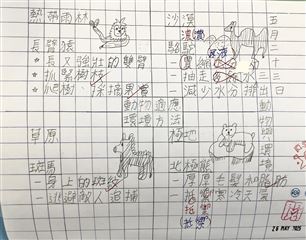 熱帶雨林
長臂猿
★長又強壯的雙臂
★抓緊樹枝
★爬樹、採摘果實
沙漠
駱駝
抽走 水
減少水分排出
五月二十三日
動物適應環境方法
草原
斑馬
身上的斑紋
逃避敵人追捕
極地
北極熊
厚厚毛髮和脂肪
抵禦寒冷天氣
抵禦
28 MAY 2025